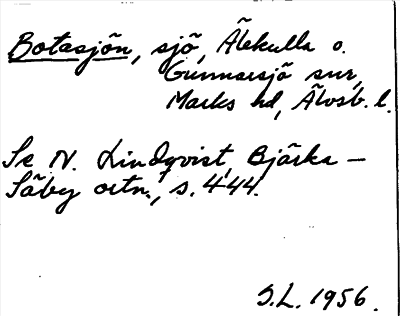 Botasjön, sjö, Älekulla o.
Gunnarsjö snr,
Marks hd, Älvsb. l.
Se N. Lindqvist, Bjärka –
Säby ortn., s. 444.
S.L. 1956.